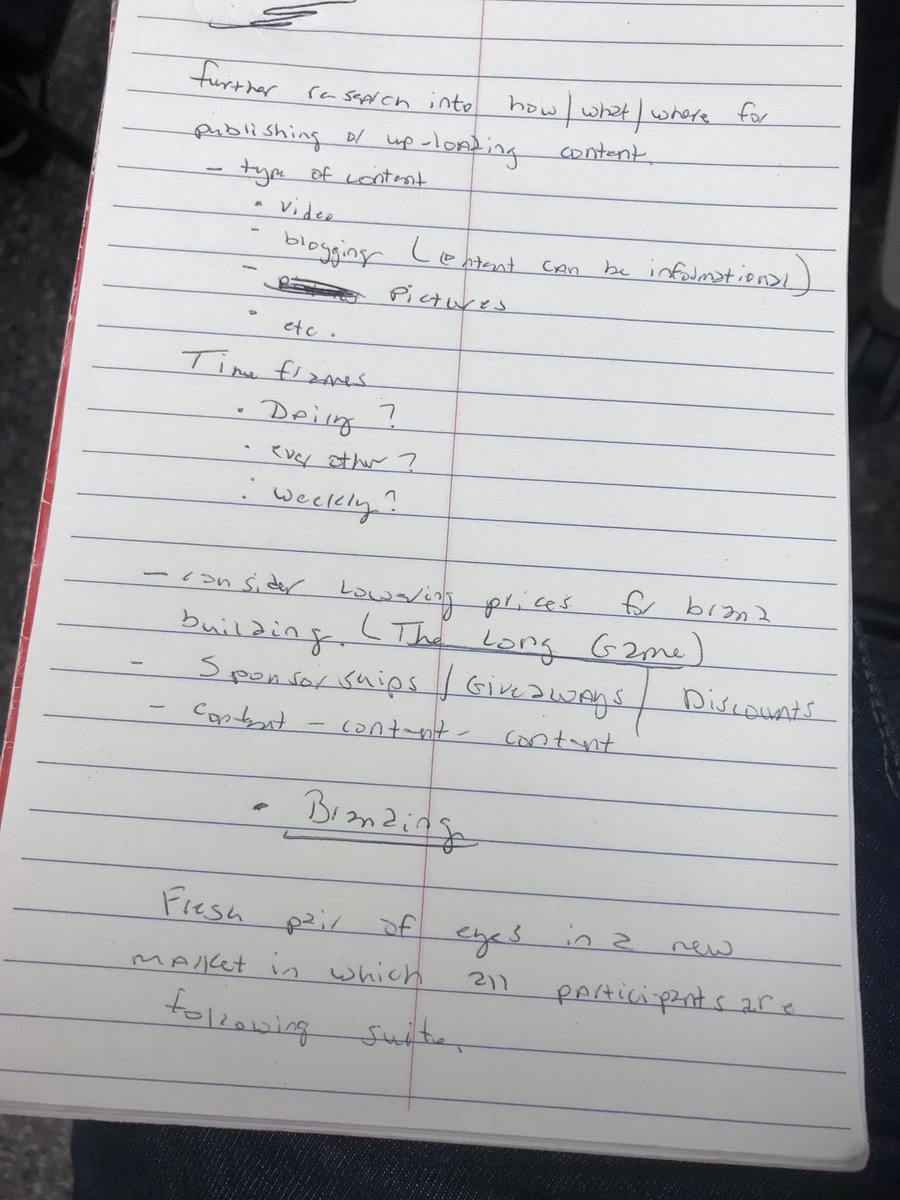 further research into how/what/where for
publishing or up-loading content.
- type of content
• video
- blogging (content can be informational)
- pictures
• etc.
Time frames
• Daily?
• ever other?
• weekly?
- consider Lowering prices for brand
building. (The Long Game)
- Sponsorships / Giveaways / Discounts
- content - content - content
• Branding
Fresh pair of eyes in a new
market in which all participants are
following suite.